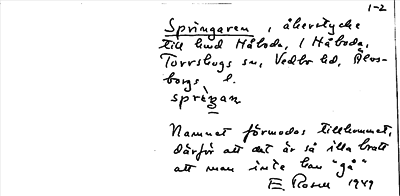 1-2
Springaren, åkerstycke
till hmd Håboda, 1 Håboda,
Torrskogs sn, Vedbo hd, Älvs-
borgs l.
spriŋan
Namnet förmodas tillkommet,
därför att det är så illa bratt
att man inte kan "gå"
E Rosell 1949